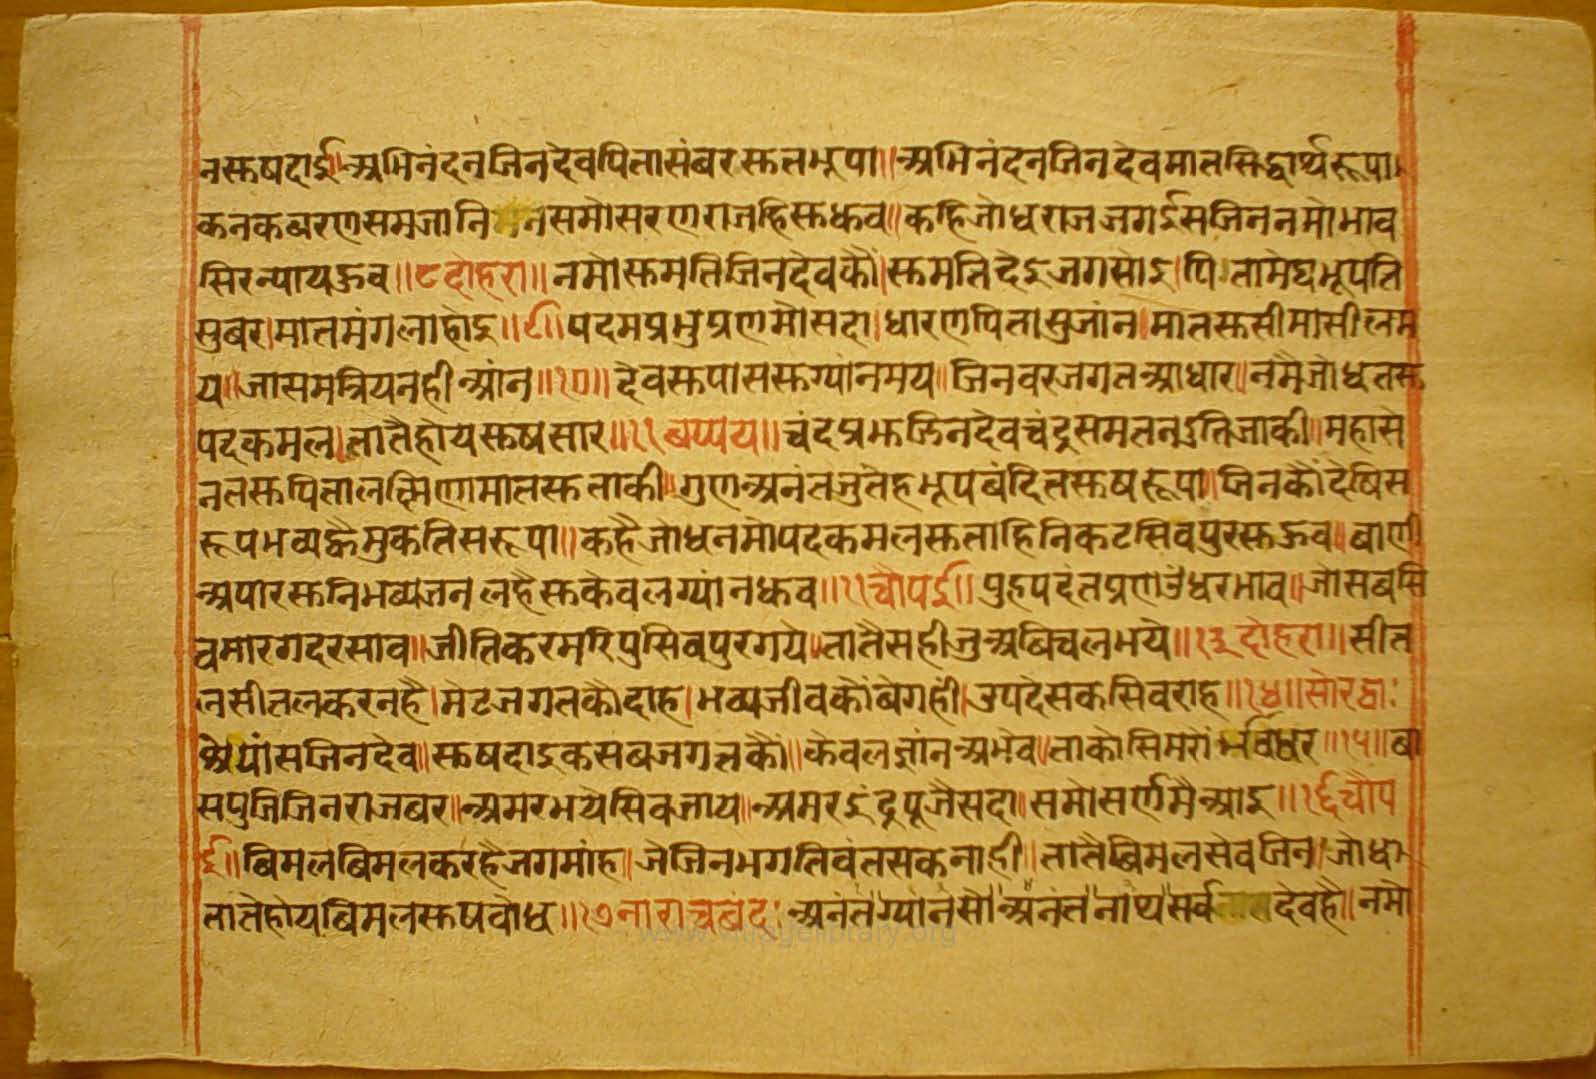 नसुषदाई॥अभिनंदनजिनदेवपितासंबरसुतभूपा॥अभिनंदनजिनदेवमातसिद्धार्थरूपा॥
कनकबरणसमजानि नसमोसरणराजहिसुधुव॥कहिजोधराजजगईसजिननमोभाव
सिरन्यायध्रुव॥८दोहरा॥नमोसुमतिजिनदेवकौं।सुमतिदेइजगसोइ।पितामेघभूपति
सुबर।मातमंगलाहोइ॥९॥पदमप्रभुप्रणमौसदा।धारणपितासुजांन।मातसुसीमासीलम
य॥जासमत्रियनहीआंन॥१०॥देवसुपाससुग्यांनमय॥जिनवरजगतआधार॥नमैजोधतसु
पदकमल।तातैहोयसुषसार॥११छप्पय॥चंदप्रभजिनदेवचंद्रसमतनदुतिजाकी॥महासे
नतसुपितालछमिणामातसुताकी॥गुणअनंतजुतेहभूपबंदितसुषरूपा॥जिनकौंदेषिस
रूपभव्यह्वैमुकतिसरूपा॥कहैजोधनमोपदकमलसुताहिनिकटसिवपुरसुध्रुव॥बाणी
अपारसुनिभव्यजनलहैसुकेवलग्यांनधुव॥१२चौपई॥पुहपदंतप्रणउंधरभाव॥जोसबसि
वमारगदरसाव॥जीतिकरमरिपुसिवपुरगये॥तातैसहीजुअबिचलभये॥१३दोहरा॥सीत
लसीतलकरनहै।मेटजगतकौदाह।भव्यजीवकौंबेगही।उपदेसकसिवराह॥१४॥सोरठाः
श्रेयांसजिनदेव॥सुषदाइकसबजगतकौं॥केवलज्ञांनअभेव॥ताकोसिमरौं ॥१५॥बा
सपुजिजिनराजबर॥अमरभयेसिवजाय॥अमरइंद्रपूजैसदा॥समोसर्णमैआइ॥१६चौप
ई॥बिमलबिमलकरहैजगमांह॥जेजिनभगतिवंतसकनाही॥तातैबिमलसेवजिनजोधा
तातैहोयबिमलसुषबोध॥१७नाराचछंदः अनंतग्यांनसौंअनंतनाथसर्व देवहै॥नमो